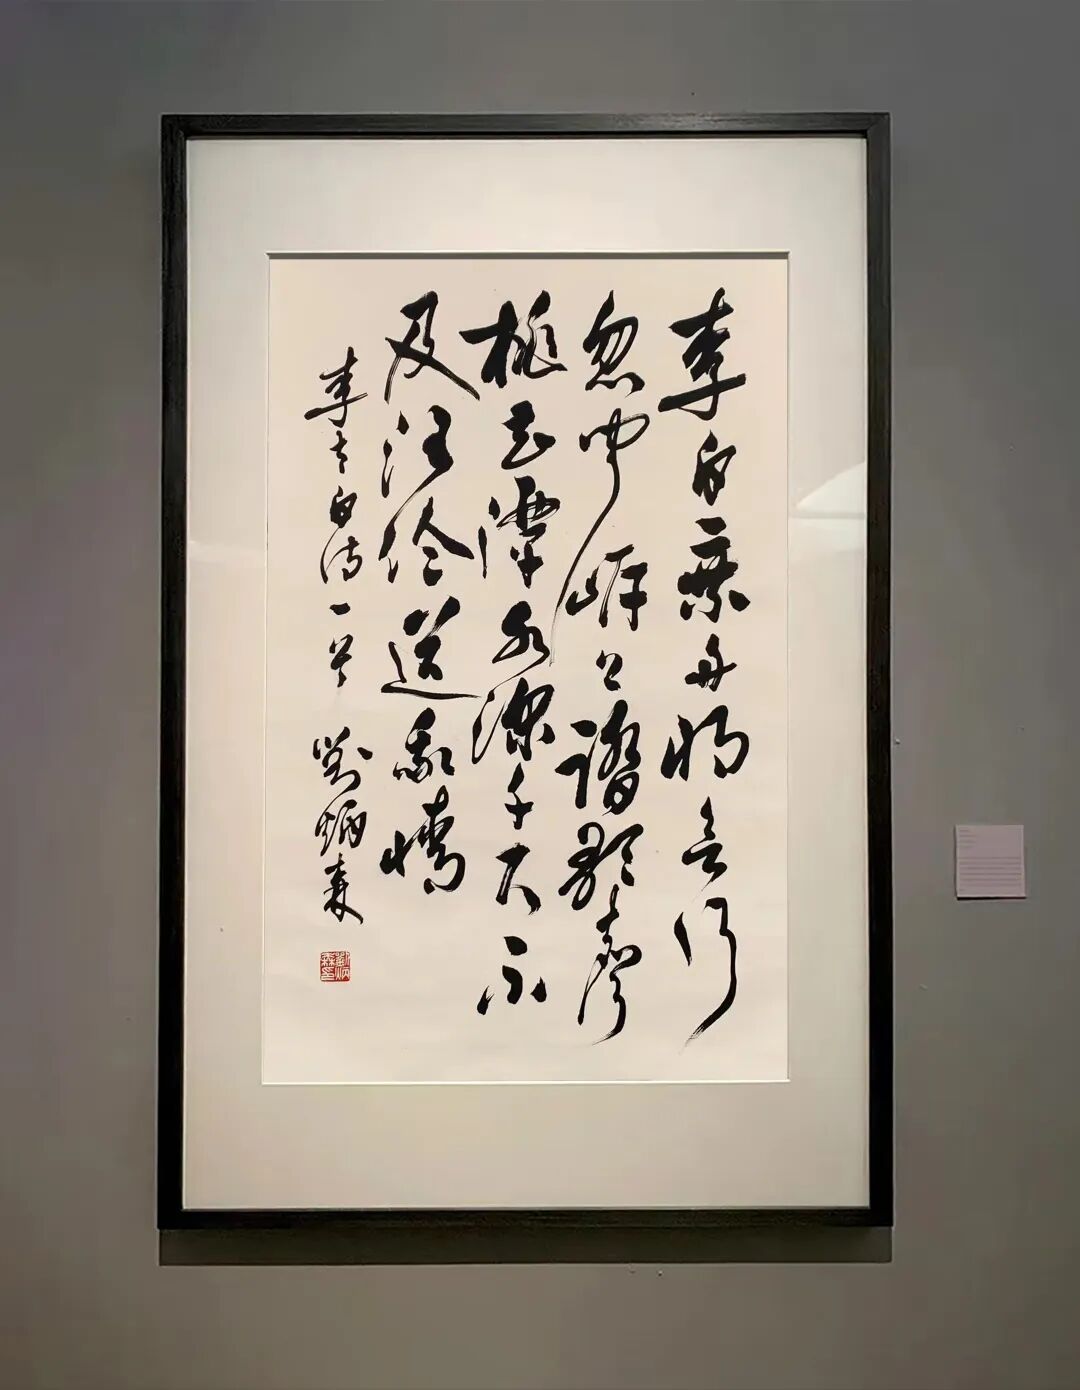 李白乘舟將欲行
忽聞岸上踏歌聲
桃花潭水深千尺不
及汪倫送我情
李太白詩一首 劉炳森
劉炳森印